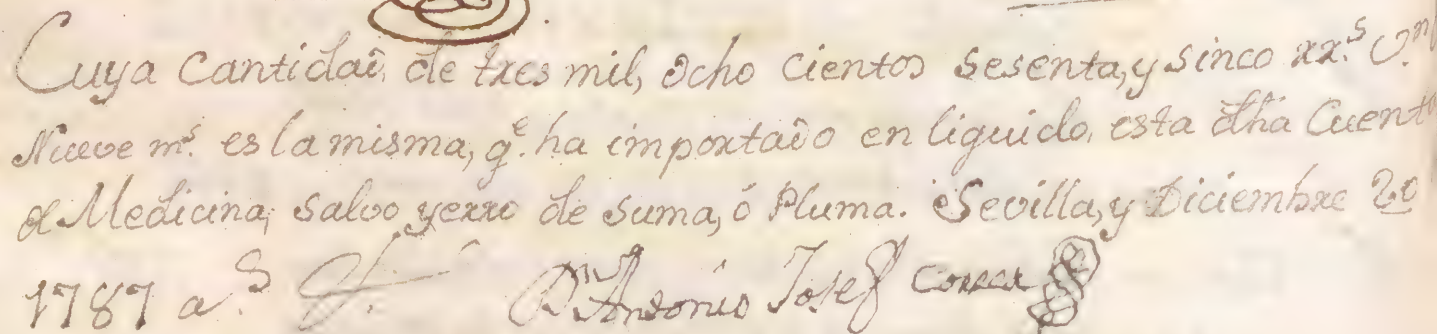 Cuya Cantidad, de tres mil, ocho cientos sesenta, y sinco rr.s v.n
Nueve m.s es la misma, q.e ha importado en liquido, esta dha Cuenta
de Medicina, salvo yerro de suma, ó Pluma. Sevilla, y Diciembre 20
1787 a.s D.n Antonio Josef Correa